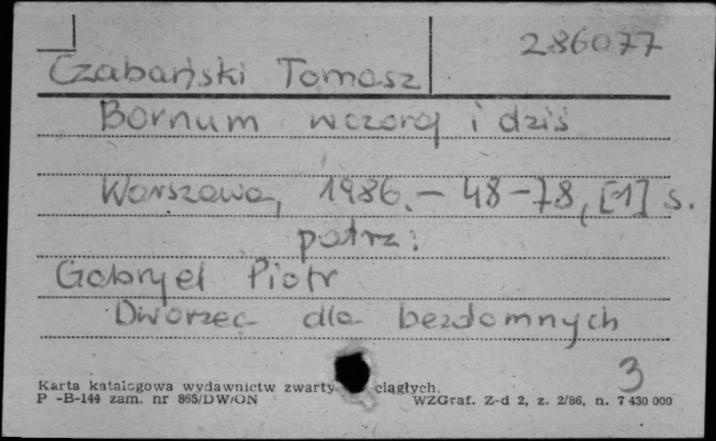 286077
Czabański Tomasz
Bornum wczoraj i dziś
Warszawa, 1986. - 48-78, [1] s.
patrz:
Gabryel Piotr
Dworzec dla bezdomnych
3
Karta katalogowa wydawnictw zwarty ciągłych.
P -B-144 zam. nr 865/DW/ON WZGraf. Z-d 2, z. 2/86, n. 7 430 000